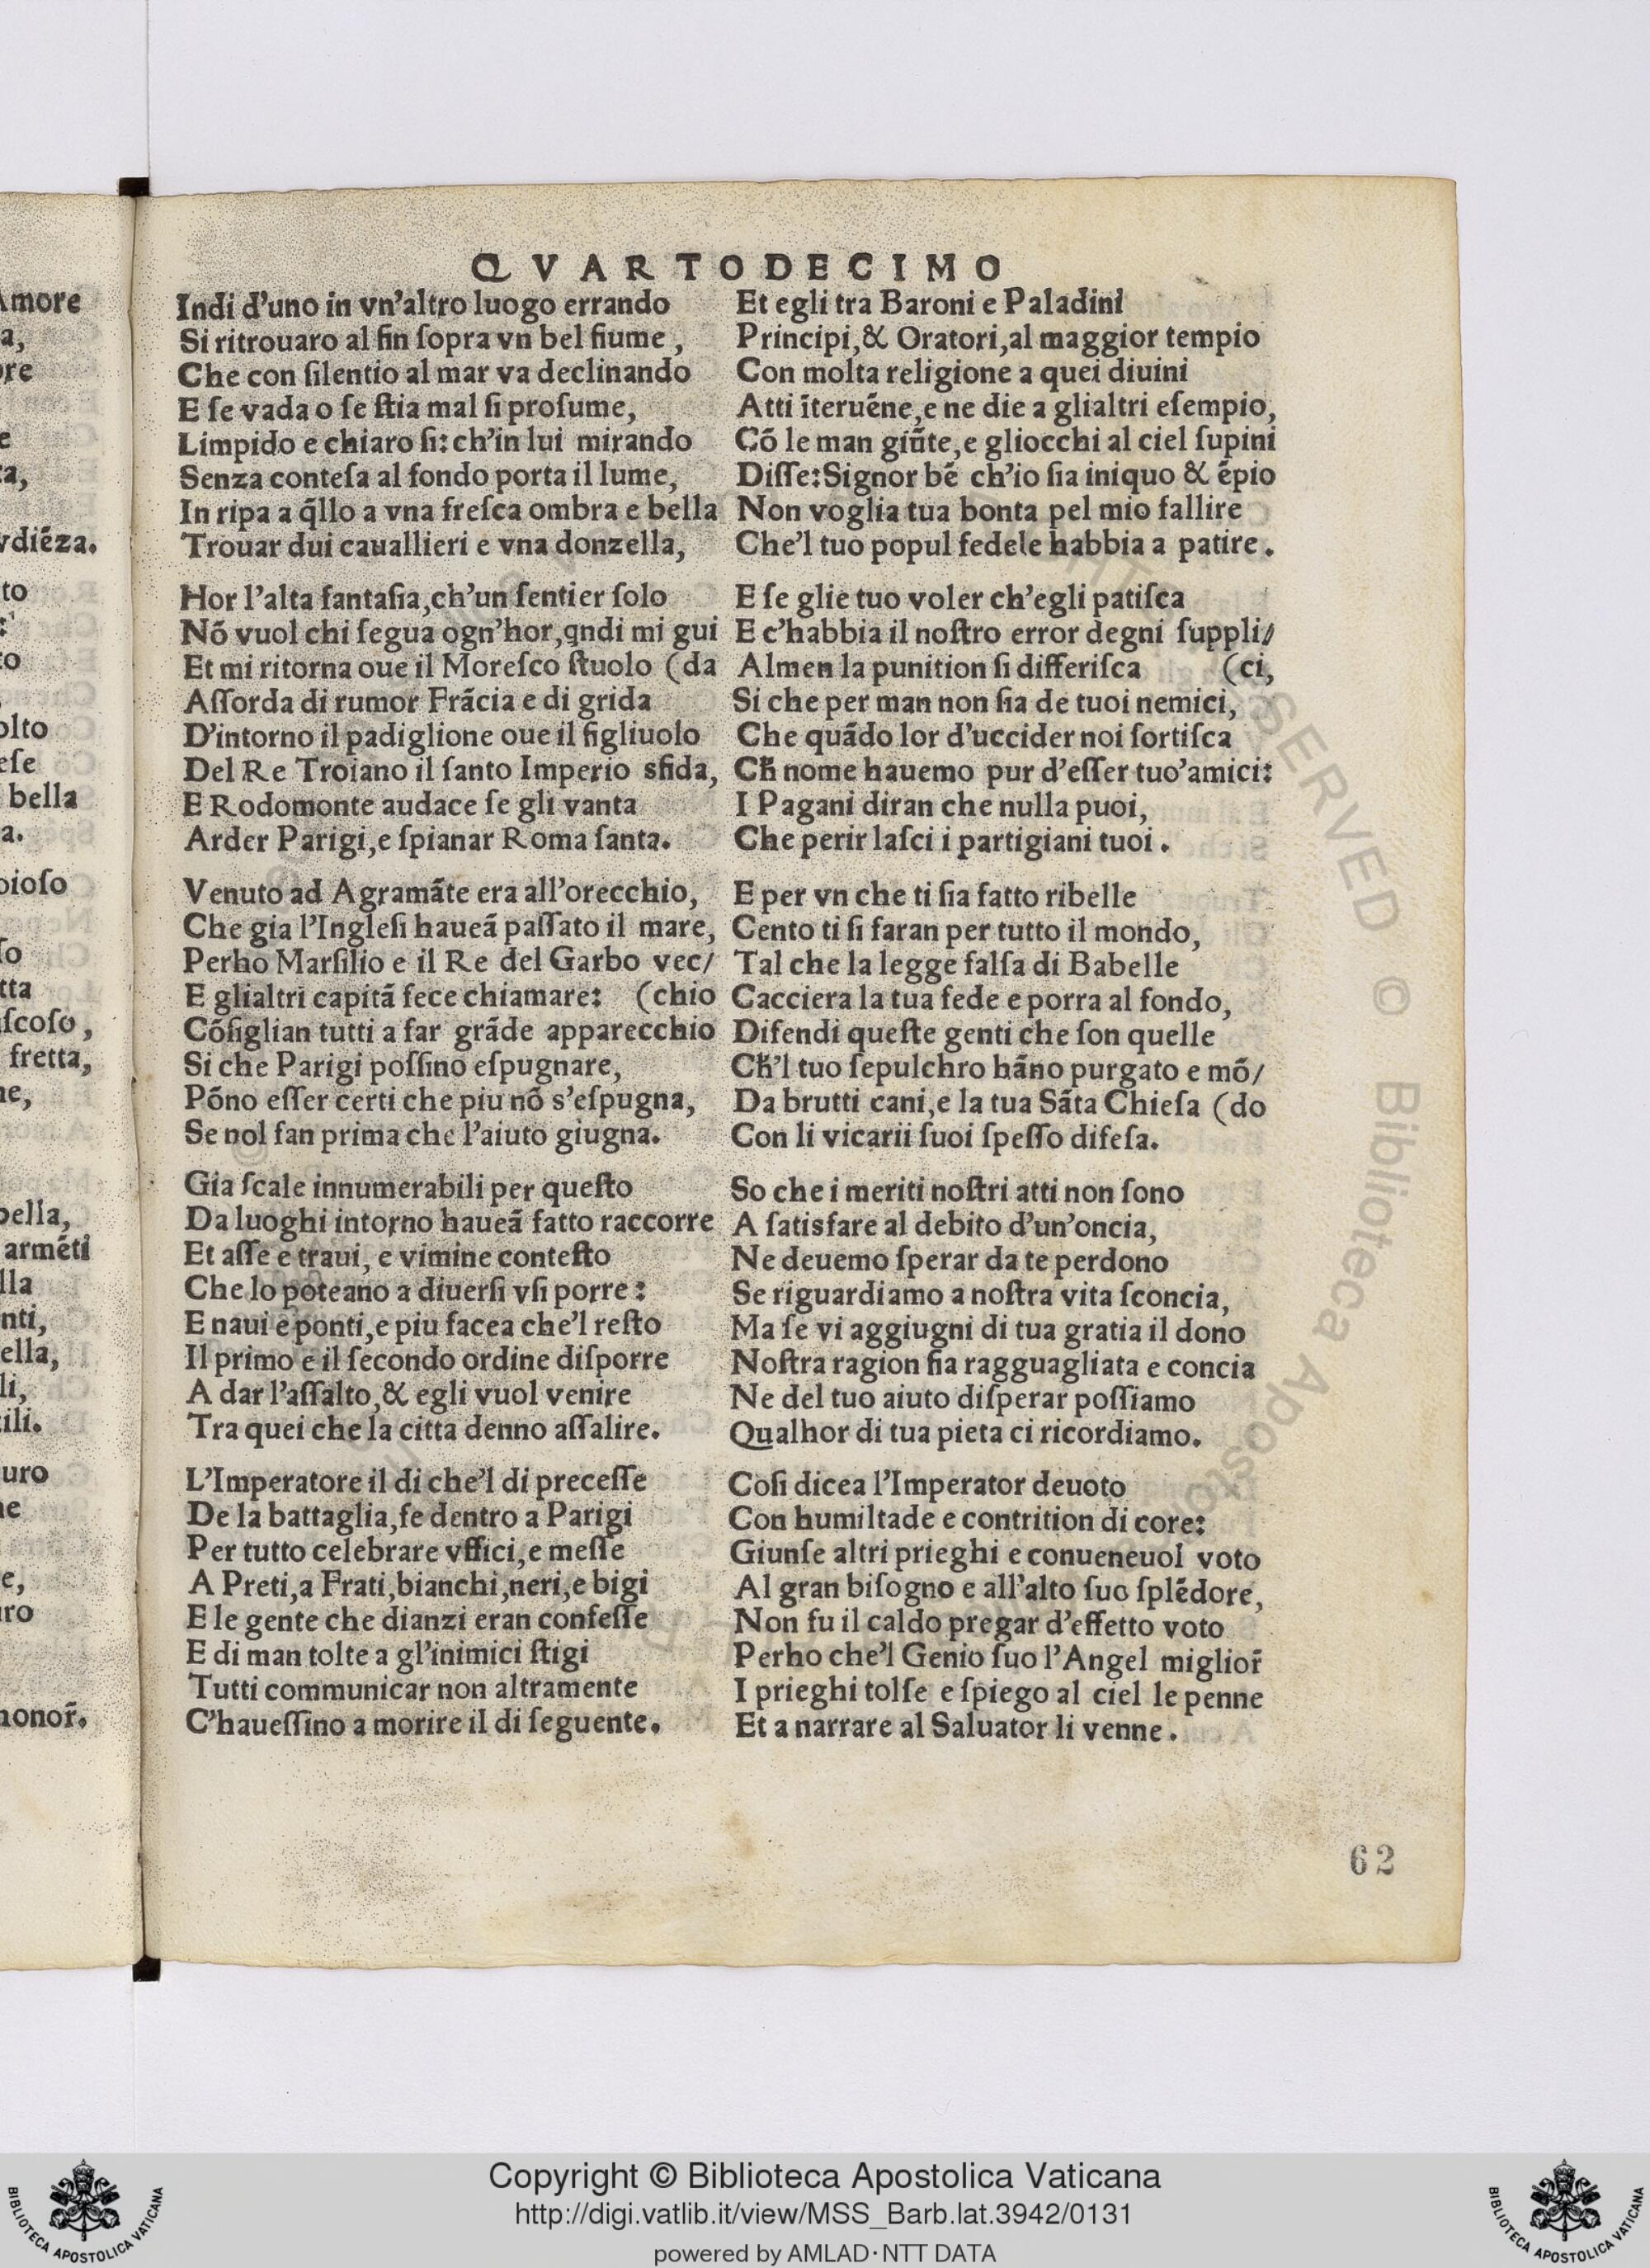 QVARTODECIMO
Indi d'uno in vn'altro luogo errando
Si ritrouaro al fin ſopra vn bel fiume,
Che con ſilentio al mar va declinando
E ſe vada o ſe ſtia mal ſi proſume,
Limpido e chiaro ſi: ch'in lui mirando
Senza conteſa al fondo porta il lume,
In ripa a q̃llo a vna freſca ombra e bella
Trouar dui cauallieri e vna donzella,
Hor l'alta fantaſia, ch'un ſentier ſolo
Nõ vuol chi ſegua ogn'hor, qndi mi gui
Et mi ritorna oue il Moreſco ſtuolo (da
Aſſorda di rumor Frãcia e di grida
D'intorno il padiglione oue il figliuolo
Del Re Troiano il ſanto Imperio sfida,
E Rodomonte audace ſe gli vanta
Arder Parigi, e ſpianar Roma ſanta.
Venuto ad Agramãte era all'orecchio,
Che gia l'Ingleſi haueã paſſato il mare,
Perho Marſilio e il Re del Garbo vec/
E glialtri capitã fece chiamare: (chio
Cõſiglian tutti a far grãde apparecchio
Si che Parigi poſſino eſpugnare,
Põno eſſer certi che piu nõ s'eſpugna,
Se nol fan prima che l'aiuto giugna.
Gia ſcale innumerabili per queſto
Da luoghi intorno haueã fatto raccorre
Et aſſe e traui, e vimine conteſto
Che lo poteano a diuerſi vſi porre:
E naui e ponti, e piu facea che'l reſto
Il primo e il ſecondo ordine diſporre
A dar l'aſſalto, & egli vuol venire
Tra quei che la citta denno aſſalire.
L'Imperatore il di che'l di preceſſe
De la battaglia, fe dentro a Parigi
Per tutto celebrare vffici, e meſſe
A Preti, a Frati, bianchi, neri, e bigi
E le gente che dianzi eran confeſſe
E di man tolte a gl'inimici ſtigi
Tutti communicar non altramente
C'haueſſino a morire il di ſeguente.
Et egli tra Baroni e Paladini
Principi, & Oratori, al maggior tempio
Con molta religione a quei diuini
Atti ĩteruẽne, e ne die a glialtri eſempio,
Cõ le man giũte, e gliocchi al ciel ſupini
Diſſe: Signor bẽ ch'io ſia iniquo & ẽpio
Non voglia tua bonta pel mio fallire
Che'l tuo popul fedele habbia a patire.
E ſe glie tuo voler ch'egli patiſca
E c'habbia il noſtro error degni ſuppli/
Almen la punition ſi differiſca (ci,
Si che per man non ſia de tuoi nemici,
Che quãdo lor d'uccider noi ſortiſca
Cħ nome hauemo pur d'eſſer tuo'amici:
I Pagani diran che nulla puoi,
Che perir laſci i partigiani tuoi.
E per vn che ti ſia fatto ribelle
Cento ti ſi faran per tutto il mondo,
Tal che la legge falſa di Babelle
Cacciera la tua fede e porra al fondo,
Difendi queſte genti che ſon quelle
Cħ'l tuo ſepulchro hãno purgato e mõ/
Da brutti cani, e la tua Sãta Chieſa (do
Con li vicarii ſuoi ſpeſſo difeſa.
So che i meriti noſtri atti non ſono
A ſatisfare al debito d'un'oncia,
Ne deuemo ſperar da te perdono
Se riguardiamo a noſtra vita ſconcia,
Ma ſe vi aggiugni di tua gratia il dono
Noſtra ragion fia ragguagliata e concia
Ne del tuo aiuto diſperar poſſiamo
Qualhor di tua pieta ci ricordiamo.
Coſi dicea l'Imperator deuoto
Con humiltade e contrition di core:
Giunſe altri prieghi e conueneuol voto
Al gran biſogno e all'alto ſuo ſplẽdore,
Non fu il caldo pregar d'effetto voto
Perho che'l Genio ſuo l'Angel miglior̃
I prieghi tolſe e ſpiego al ciel le penne
Et a narrare al Saluator li venne.
62
Copyright © Biblioteca Apostolica Vaticana
http://digi.vatlib.it/view/MSS_Barb.lat.3942/0131
powered by AMLAD·NTT DATA
BIBLIOTECA APOSTOLICA VATICANA
BIBLIOTECA APOSTOLICA VATICANA